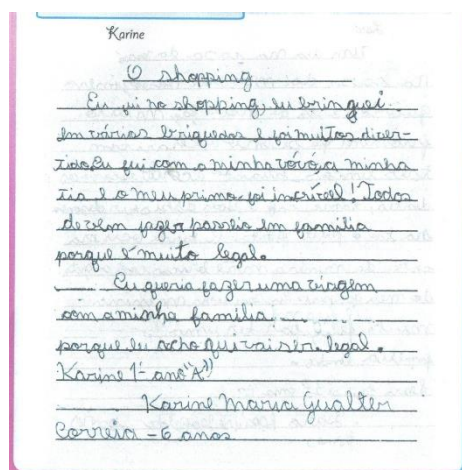 Karine
O shopping
Eu fui no shopping, eu bringuei
em várias briquedos e foi muitos diver-
tido. Eu fui com a minha vóvó, a minha
tia e o meu primo, foi incrível! Todos
devem fazer passeio em família
porque é muito legal.
Eu queria fazer uma viagem
com a minha família
porque eu acho qui vai ser legal.
Karine 1- ano "A"
Karine Maria Gualter
Correia - 6 anos